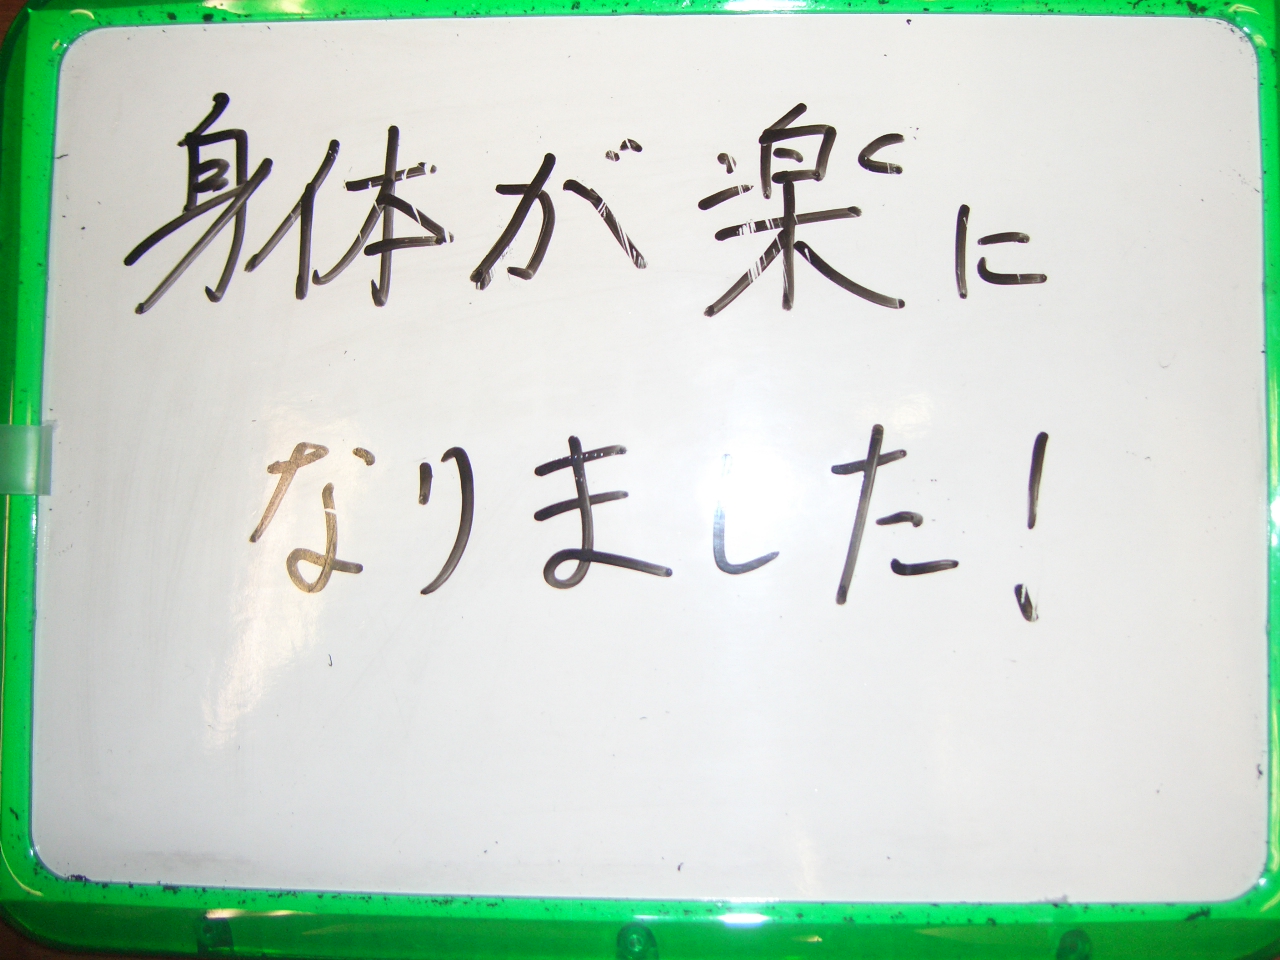 身体が楽に
なりました!